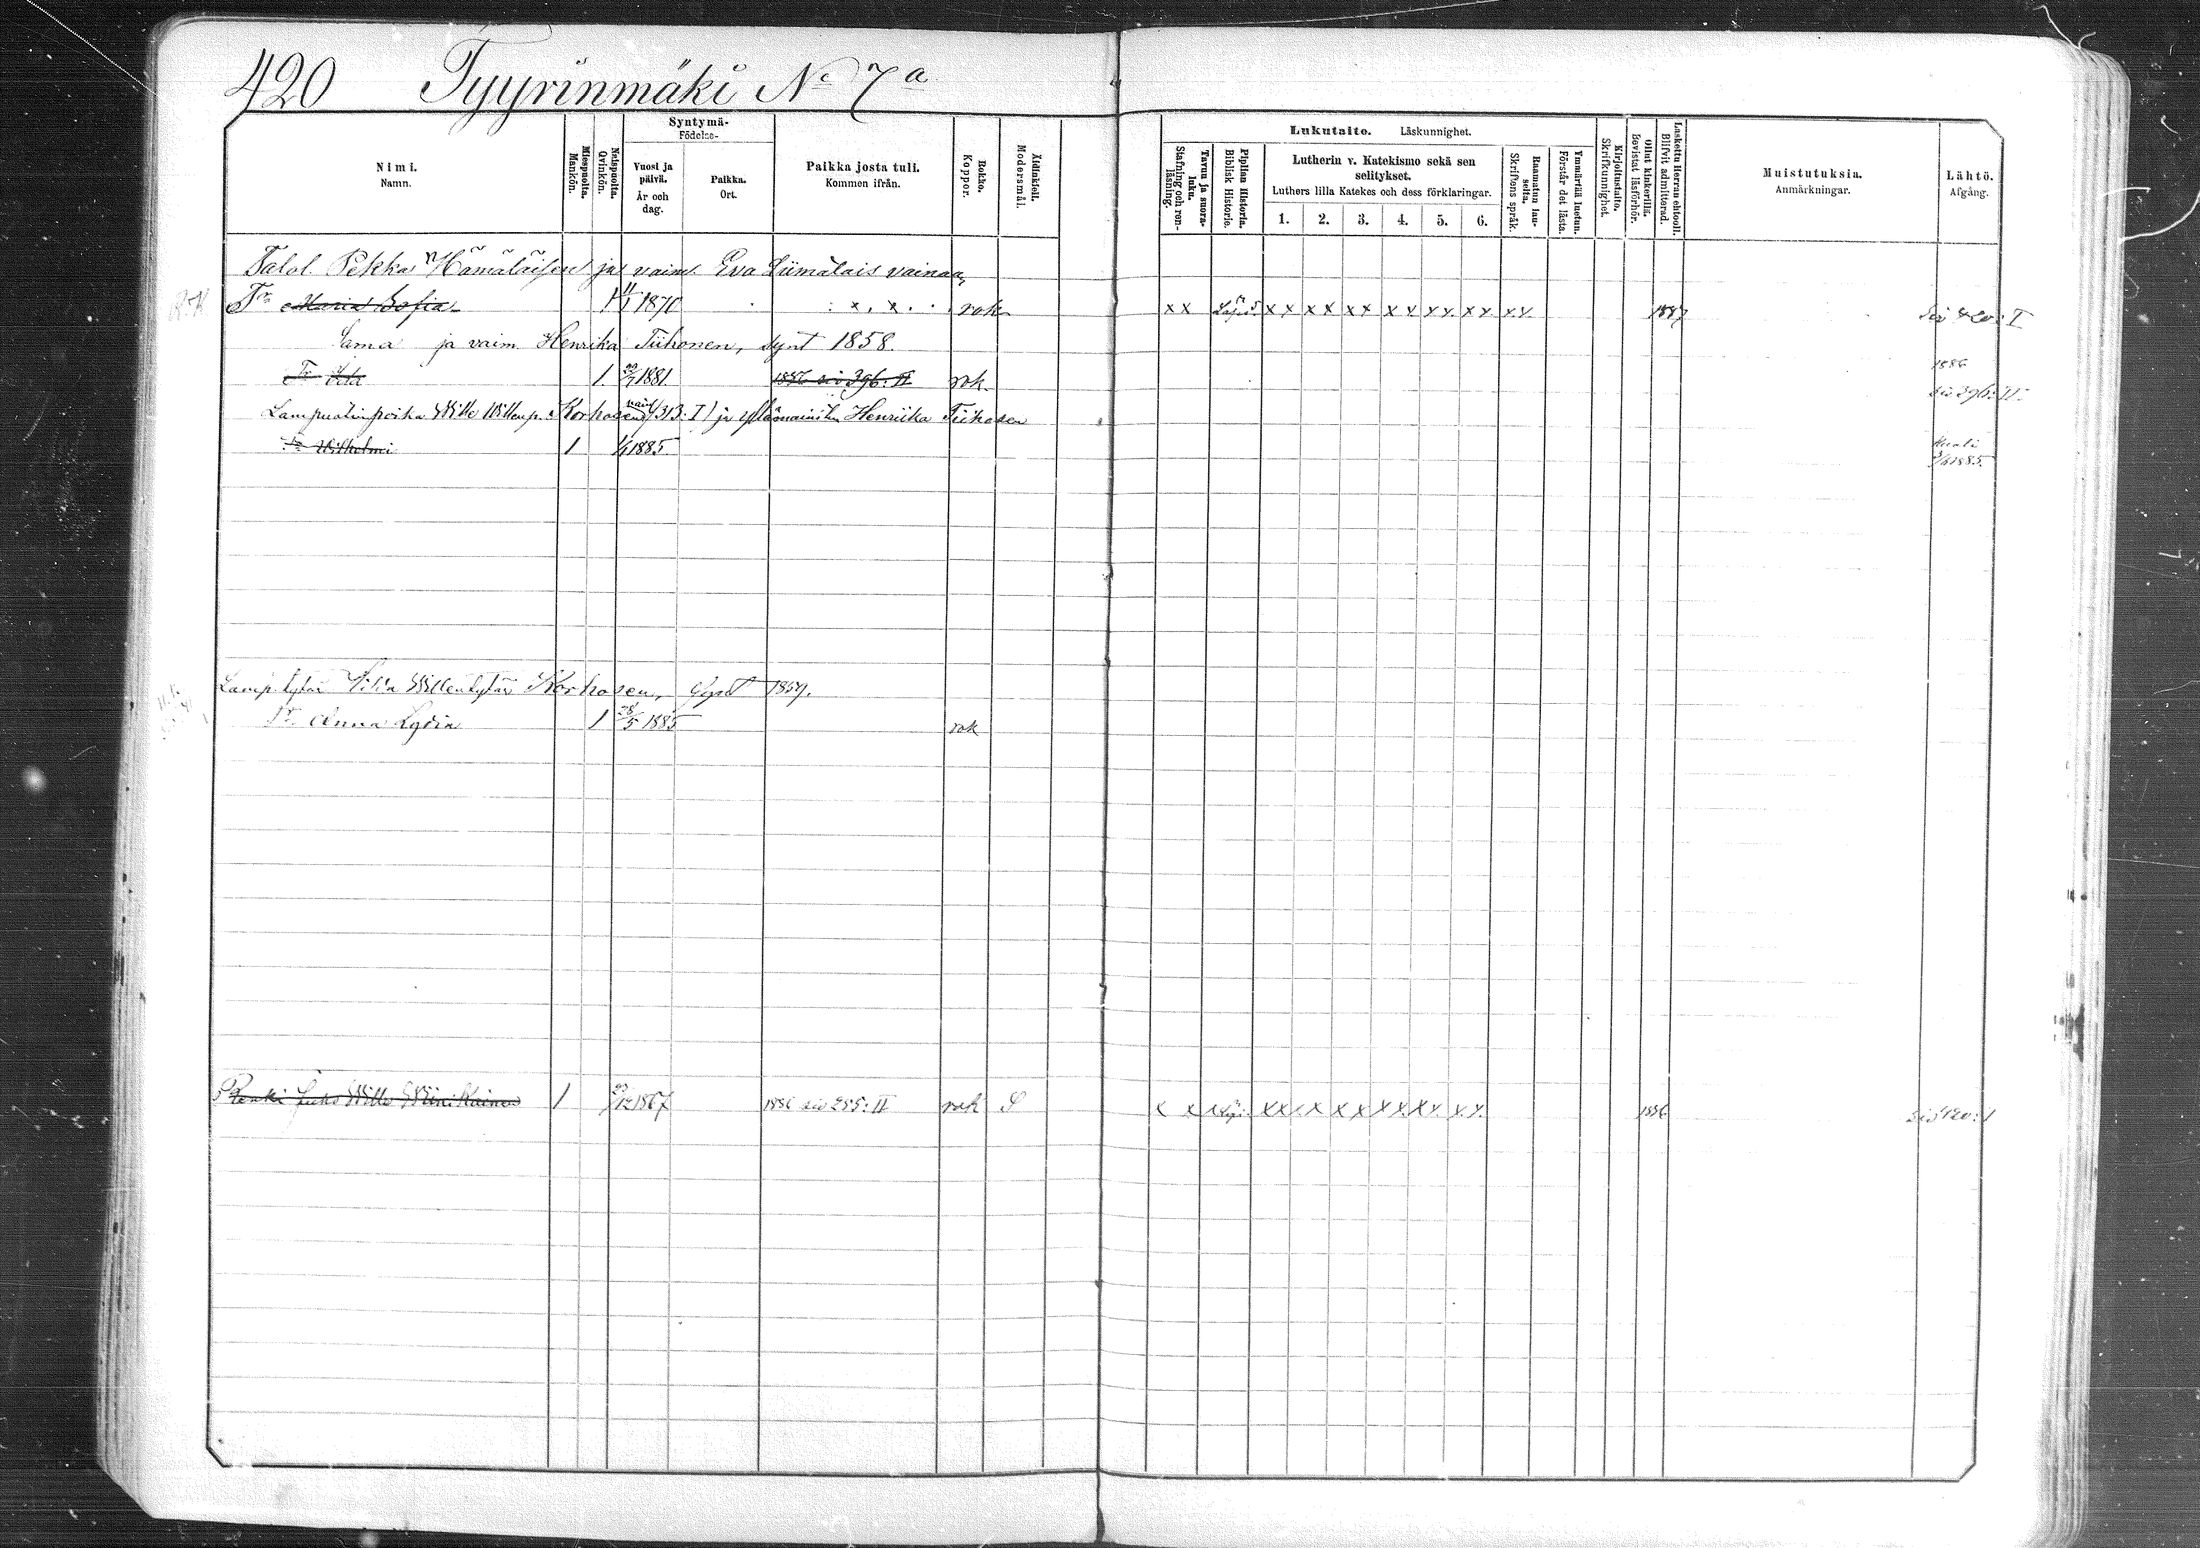 420 Tyyrinmäki No 7a
Nimi. Namn.
Miespuolta. Mankön.
Naispuolta. Qvinkön.
Syntymä- Födelse-
Vuosi ja päivä. År och dag.
Paikka. Ort.
Paikka josta tuli. Kommen ifrån.
Rokko. Koppor.
Äidinkieli. Modersmål.
Lukutaito. Läskunnighet.
Tavuu ja suora-luku. Stafning och ren-läsning.
Piplian Historia. Biblisk Historie.
Lutherin v. Katekismo sekä sen selitykset.
Luthers lilla Katekes och dess förklaringar.
1. 2. 3. 4. 5. 6.
Raamatun lau-selta. Skriftens språk.
Ymmärtää luetun. Förstår det lästa.
Kirjoitustaito. Skrifkunnighet.
Ollut kinkerillä. Bevistat läsförhör.
Laskettu Herran ehtooll. Blifvit admitterad.
Muistutuksia. Anmärkningar.
Lähtö. Afgång.
Talol. Pekka Hämäläisen ja vaim. Eva Liimatais vainaa,
Tr Maria Sofia 1 11/1 1870 rok x x x x x x x x x x x x x x x x 1887 siv 420: I
Sama ja vaim Henrika Tiihonen, synt 1858.
Tr Ida 1. 1881. 1886 siv 396: II rok. 1886 siv 396: II.
Lampuotinpoika Wille Willenp. Korhosen (313: I) ja Henriika Tiihosen
Wilhelmi 1 1885 Kuoli 1885.
Lamp. tytär Willentytär Korhosen, Synt 1859.
Tr. Anna Lydia 1 28/5 1885 rok
Renki Wille Miinikainen 1 /12 1867 1886 siv 255: II rok S x x x x x x x x x x x x x x 1886 siv 420: I